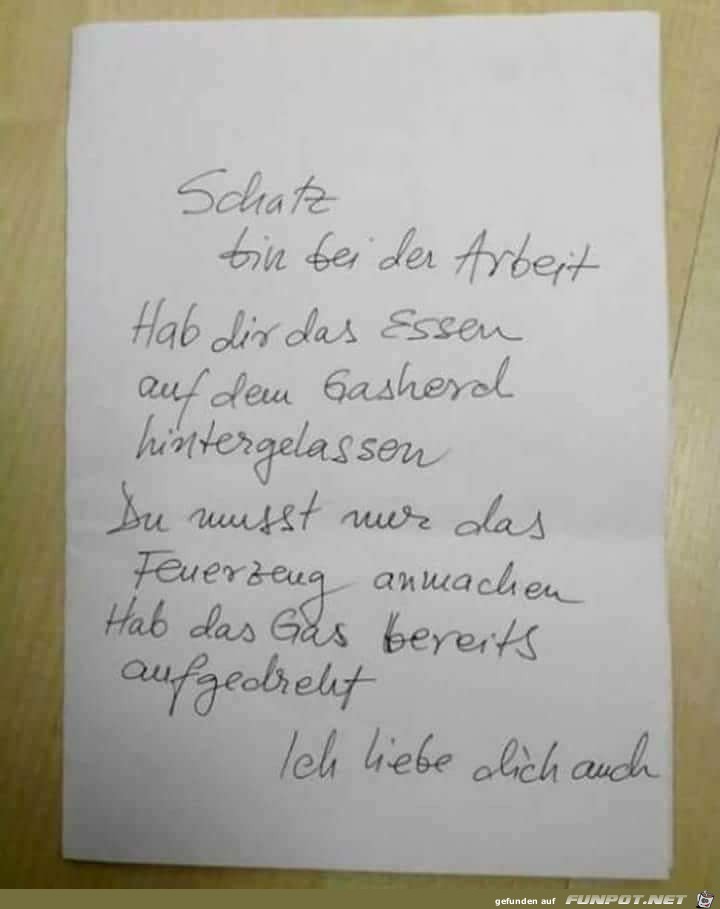 Schatz
bin bei der Arbeit
Hab dir das Essen
auf dem Gasherd
hintergelassen
Du musst nur das
Feuerzeug anmachen
Hab das Gas bereits
aufgedreht
Ich liebe dich auch
gefunden auf FUNPOT.NET